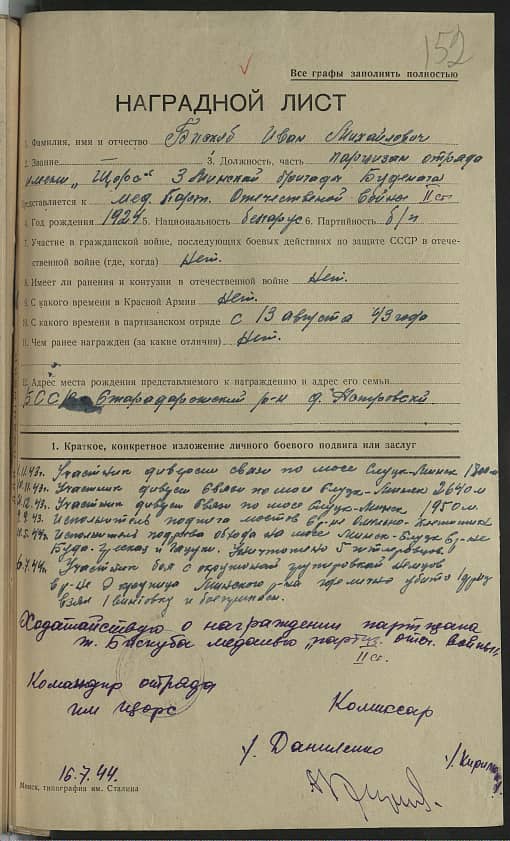 152
Все графы заполнять полностью
НАГРАДНОЙ ЛИСТ
1. Фамилия, имя и отчество Бискуб Иван Михайлович
2. Звание — 3. Должность, часть партизан отряда
имени „Щорса" 3 Минской бригады Буденага
Представляется к мед. Парт. Отечественой войны II ст
4. Год рождения 1924 5. Национальность беларус 6. Партийность б/п
7. Участие в гражданской войне, последующих боевых действиях по защите СССР в отече-
ственной войне (где, когда) Нет.
8. Имеет ли ранения и контузии в отечественной войне Нет.
9. С какого времени в Красной Армии Нет.
10. С какого времени в партизанском отряде с 13 августа 43 года
11. Чем ранее награжден (за какие отличия) Нет.
12. Адрес места рождения представляемого к награждению и адрес его семьи
БССР р-н д.
1. Краткое, конкретное изложение личного боевого подвига или заслуг
11.43г. Участник диверсии связи по шосе Слуцк-Минск
11.43г. Участник диверсии связи по шосе Слуцк-Минск 2640 м
12.43г. Участник диверсии связи по шосе Слуцк-Минск 1950 м
9.43. Исполнитель мостов в р-не
5.44г. Исполнитель подрыва на шосе Минск-Слуцк в р-не
Уничтожено 5
6.7.44г. Участник боя с окружоной групировкой немцов
в р-не д Минского р-на где лично убито
взял 1 винтовку и боеприпасы.
Ходатайствую о награждении партизана
т. Бискуба медалью „партиз. отеч. войны",
II ст.
Командир отряда
им Щорс
Комиссар
/. Даниленко
16.7.44.
Минск, типография им. Сталина